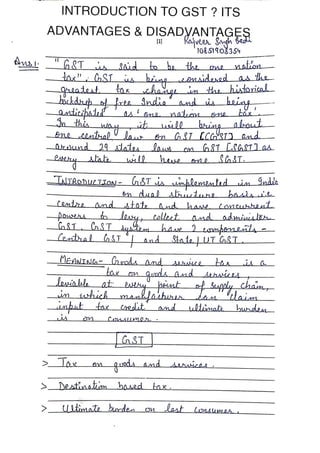 INTRODUCTION TO GST ? ITS
ADVANTAGES & DISADVANTAGES
[1] Rajveer Singh Bedi
10851908354
Ans.1- " GST is said to be the one nation
tax". GST is being considered as the
greatest tax change in the historical
backdrop of free India and is being
anticipated as 'one nation one tax'
In this way, it will bring about
one central law on GST [CGST] and
around 29 states laws on GST [SGST] as
every state will have one SGST.
INTRODUCTION- GST is implemented in India
on dual structure basis i.e
centre and state and have concurrent
powers to levy, collect and administer
GST. GST system have 2 components -
Central GST / and State / UT GST.
MEANING- Goods and service tax is a
tax on goods and services,
leviable at every point of supply chain,
in which manufacturer can claim
input tax credit and ultimate burden
is on consumer.
GST
> Tax on goods and services.
> Destination based tax.
> Ultimate burden on last consumer.